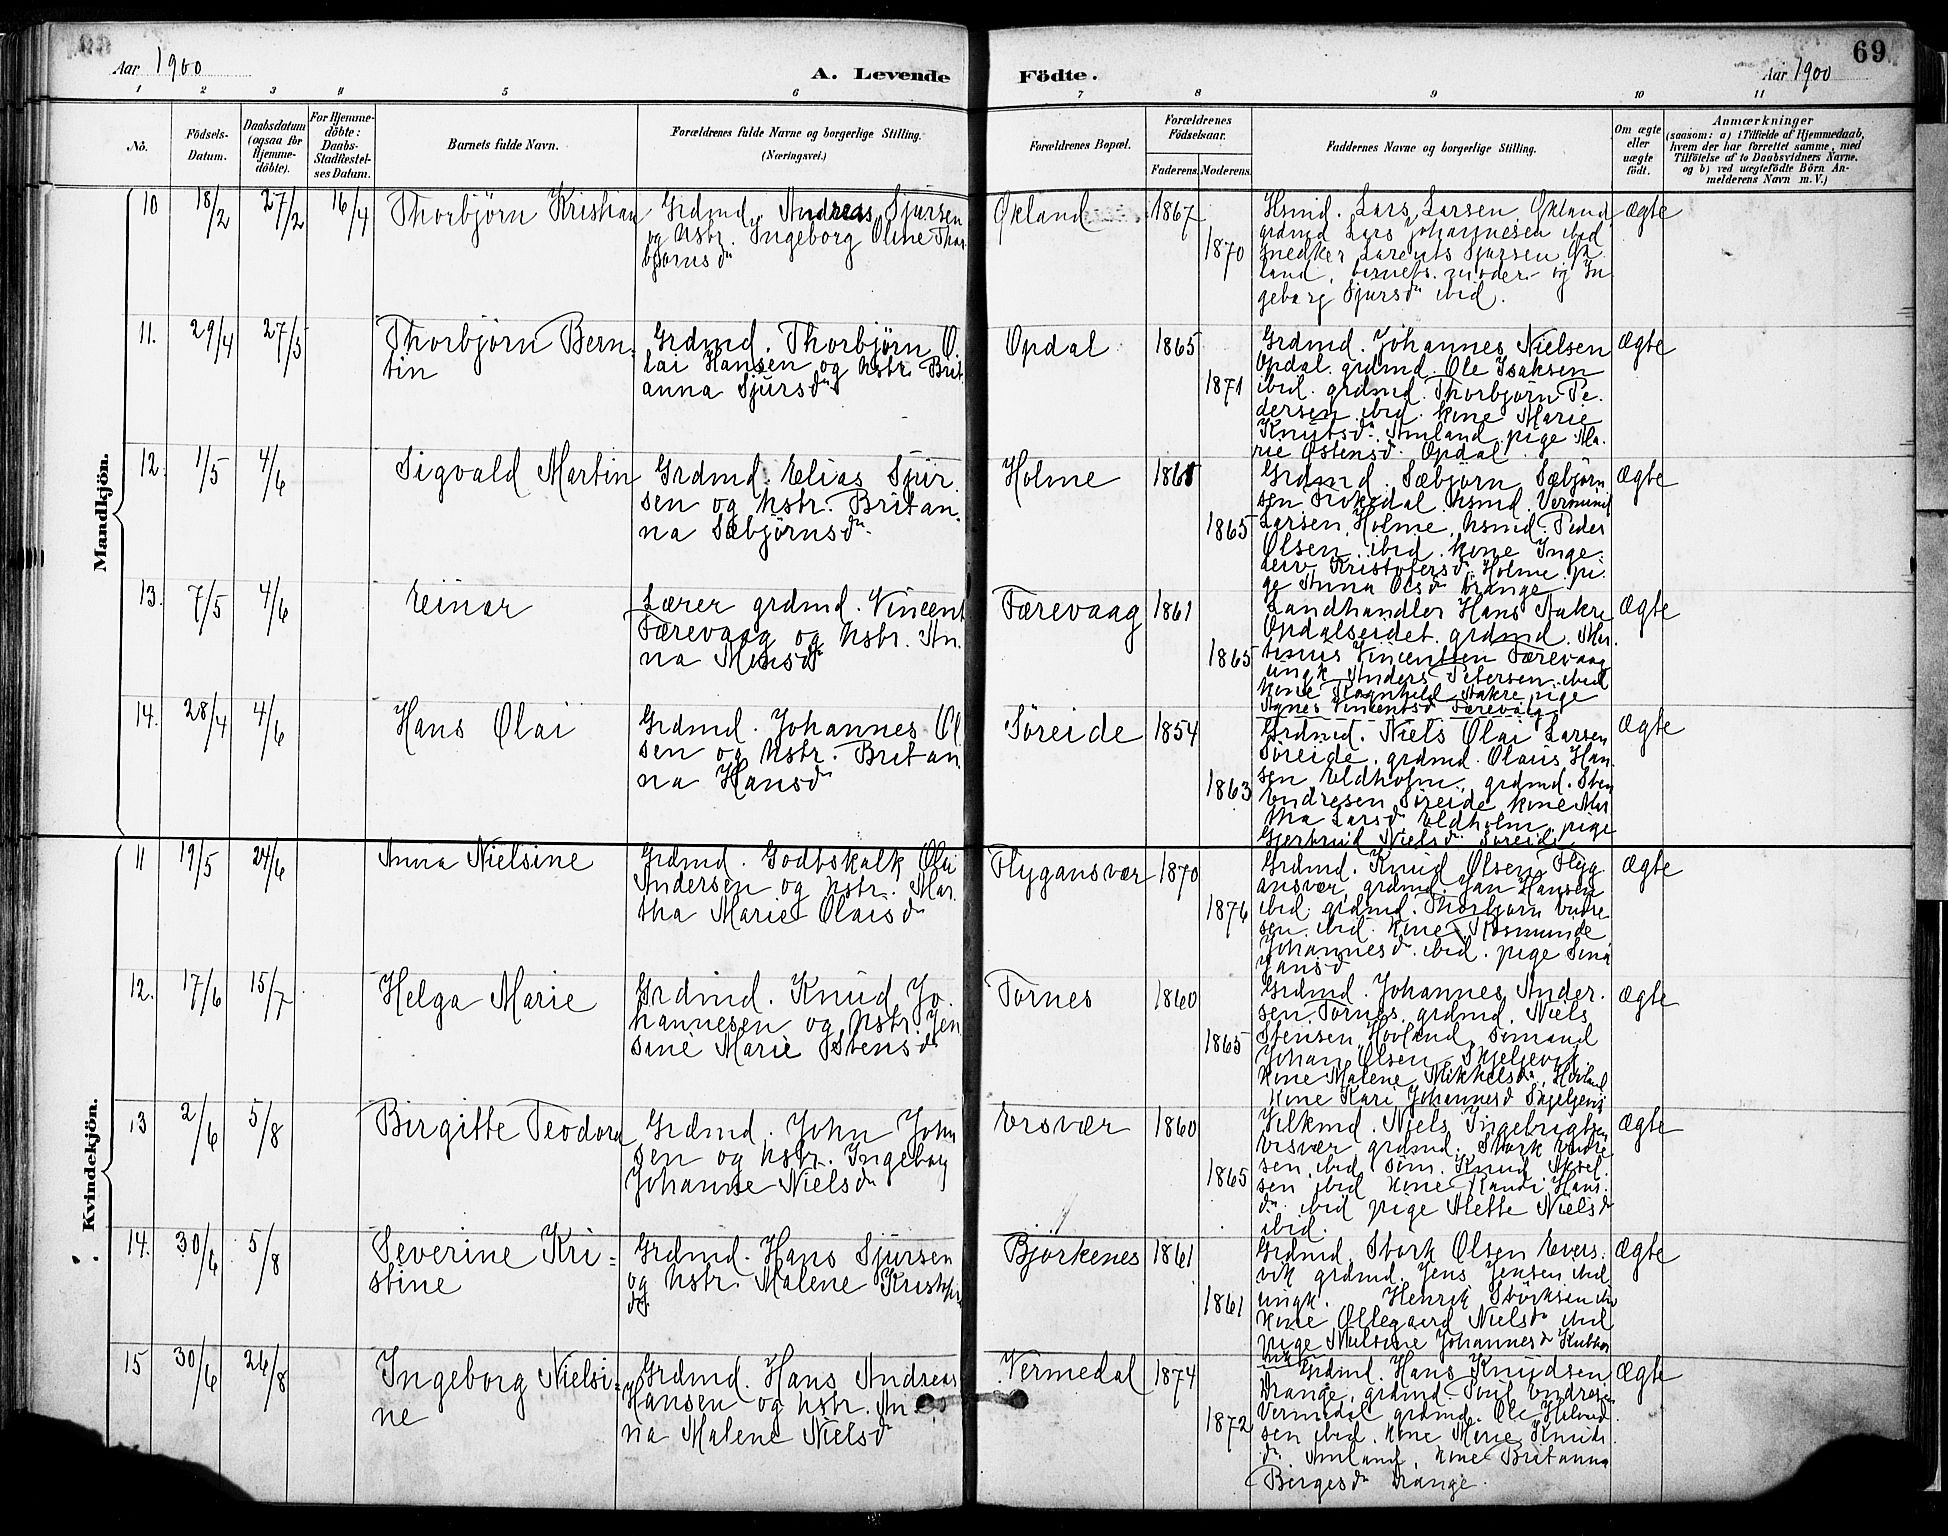 69
Aar 1900
A. Levende Födte.
Aar 1900
1 2 3 4 5 6 7 8 9 10 11
No.
Födsels-Datum.
Daabsdatum (ogsaa for Hjemme-döbte).
For Hjemme-döbte: Daabs-Stadfestel-ses Datum.
Barnets fulde Navn.
Forældrenes fulde Navne og borgerlige Stilling.
(Næringsvei.)
Forældrenes Bopæl.
Forældrenes Födselsaar.
Faderens. Moderens.
Faddernes Navne og borgerlige Stilling.
Om ægte eller uægte födt.
Anmærkninger
(saasom: a) i Tilfælde af Hjemmedaab,
hvem der har forrettet samme, med
Tilföielse af to Daabsvidners Navne.
og b) ved uægtefödte Börn An-
melderens Navn m. V.)
Mandkjön.
10 18/2 27/2 16/4 Thorbjörn Kristian
Grdmd. Andreas Sjursen
og hstr. Ingeborg Oline Thor
bjørnsdr
Økland 1867 1870
Hsmd. Lars Larsen Økland
grdmd Lars Johannesen ibid
snedker Larents Sjursen Øk
land, barnets moder og In
geborg Sjursdr ibid.
Ægte
11. 29/4 27/5 Thorbjörn Bern-
tin
Grdmd. Thorbjörn O
lai Hansen og hstr. Brit
anna Sjursdr
Opdal 1865 1871
Grdmd. Johannes Nielsen
Opdal. grdmd. Ole Isaksen
ibid. grdmd. Thorbjörn Pe-
dersen ibid. kone Marie
Knutsdr. Amland, pige Ma-
rie Østensdr. Opdal
Ægte
12. 1/5 4/6 Sigvald Martin
Grdmd. Elias Sjur
sen og hstr. Britan-
na Sæbjørnsdr
Holme 1865
Grdmd. Sæbjörn Sæbjörn
sen Trokedal hsmd. Vermund
Larsen, Holme, hsmd. Peder
Olsen ibid. kone Inge-
leiv Kristofersdr. Holme. pi-
ge Anna Olsdr Drange
Ægte
13. 7/5 4/6 Einar
Lærer grdmd. Vincent
Færevaag og hstr. An-
na Monsdr
Færevaag 1861 1865
Landhandler Hans Aakre
Opdalseidet. grdmd. Mar
tinus Vincentsen Færevaag
ungk. Anders Petersen ibid
kone Ragnhild Aakre pige
Agnes Vincentsdr Færevaag
Ægte
14. 28/4 4/6 Hans Olai
Grdmd. Johannes Ol
sen og hstr. Britan
na Hansdr
Søreide 1854 1863
Grdmd. Niels Olai Larsen
Søreide. grdmd. Olaus Han-
sen Eldholm, grdmd. Sten
Endresen Søreide kone Mar
tha Larsdr Eldholm. pige
Gjertrud Nielsdr Søreide
Ægte
Kvindekjön.
11 19/5 24/6 Anna Nielsine
Grdmd. Godtskalk Olai
Andersen og hstr. Mar
tha Marie Olaisdr
Flygansvær 1870 1876
Grdmd. Knud Olsen Flyg
ansvær, grdmd. Jan Hansen
ibid. grdmd. Thorbjørn Endre
sen ibid. kone Rosmunde
Johannesdr ibid. pige Sina
Jansdr
Ægte
12. 17/6 15/7 Helga Marie
Grdmd. Knud Jo-
hannesen og hstr. Jen
sine Marie Stensdr
Tornes 1860 1865
Grdmd. Johannes Ander-
sen Tornes, grdmd. Niels
Stensen Hovland, sömand
Johan Olsen Skjeljevik
kone Malene Mikkelsdr. Hovland
kone Kari Johannesd Skjeljevik
Ægte
13 2/6 5/8 Birgitte Teodora
Grdmd. John John
sen og hstr. Ingeborg
Johanne Nielsdr
Ersvær 1860 1865
Vilkmd. Niels Ingebrigtsen
Ersvær grdmd. Stork Endre
sen ibid söm. Knud Aksel
sen ibid kone Randi Hans-
dr ibid pige Alette Nielsdr
ibid.
Ægte
14. 30/6 5/8 Severine Kri-
stine
Grdmd. Hans Sjursen
og hstr. Malene Kristofer
dr.
Björkenes 1861 1861
Grdmd. Stork Olsen Evers-
vik grdmd. Jens Jensen ibid
ungk. Henrik Storksen ibid
kone Ollegaard Nielsdr ibid
pige Nielsine Johannesdr
Ægte
15 30/6 26/8 Ingeborg Nielsi-
ne
Grdmd. Hans Andreas
Hansen og hstr. An-
na Malene Nielsdr
Vermedal 1874 1872
Grdmd. Hans Knudsen
Drange, grdmd. Poul Endresen
Vermedal grdmd. Ole Halvord
sen ibid. kone Marie Knuds
dr. Amland, kone Britanna
Birgesdr Drange.
Ægte